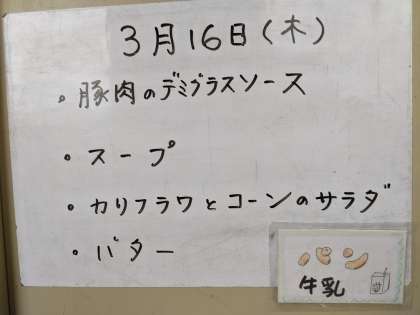 3月16日(木)
・豚肉のデミグラスソース
・スープ
・カリフラワとコーンのサラダ
・バター
パン
牛乳